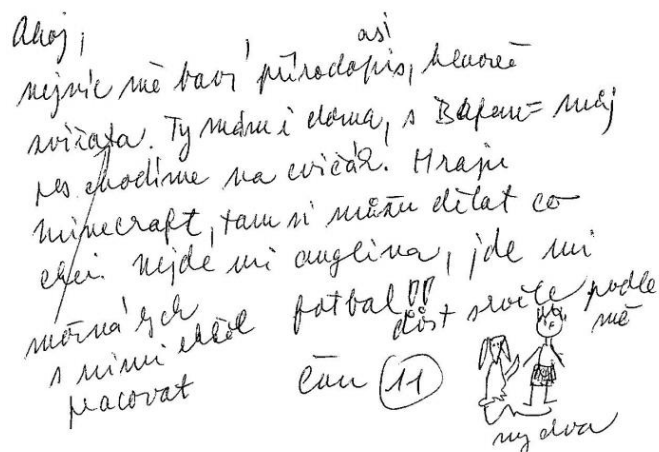 Ahoj,
asi
nejvíc mě baví přírodopis, hlavně
zvířata. Ty mám i doma, s Bafem = můj
pes chodíme na cvičák. Hraju
minecraft, tam si můžu dělat co
chci. Nejde mi anglina, jde mi
fotbal!! dost skvěle podle
mě
možná bych
s nimi chtěl
pracovat
Čau 11
my dva